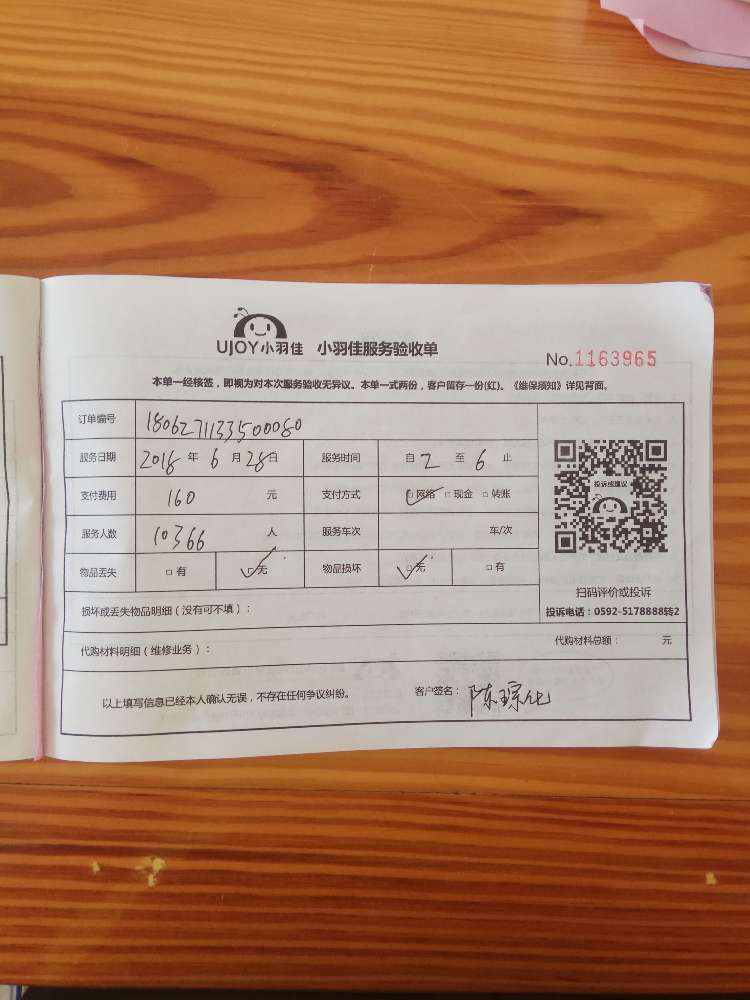 UJOY小羽佳 小羽佳服务验收单
No.1163965
本单一经核签，即视为对本次服务验收无异议。本单一式两份，客户留存一份(红)。《维保须知》详见背面。
订单编号 1806271133500080
服务日期 2018 年 6 月 28 日 服务时间 自 2 至 6 止
支付费用 160 元 支付方式 □网络 □现金 □转账
服务人数 10366 人 服务车次 车/次
物品丢失 □有 □无 物品损坏 □无 □有
投诉或建议
扫码评价或投诉
投诉电话：0592-5178888转2
损坏或丢失物品明细（没有可不填）：
代购材料明细（维修业务）： 代购材料总额： 元
以上填写信息已经本人确认无误，不存在任何争议纠纷。 客户签名：陈琮化